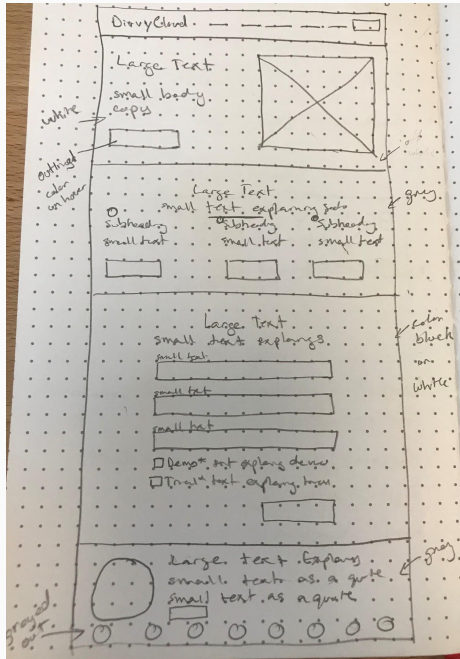 DivvyCloud
Large Text
small body
copy
white
outlined
color
on hover
Large Text
small text explaining
grey
Subheading
small text
Subheading
small text
Subheading
small text
Large Text
small text explaings
color
block
on
white
small text
small text
small text
Demo* text explaing demo
Trial* text explaing
Large text Explang
small text as a quote
small text as a quote
grey
grayed
out